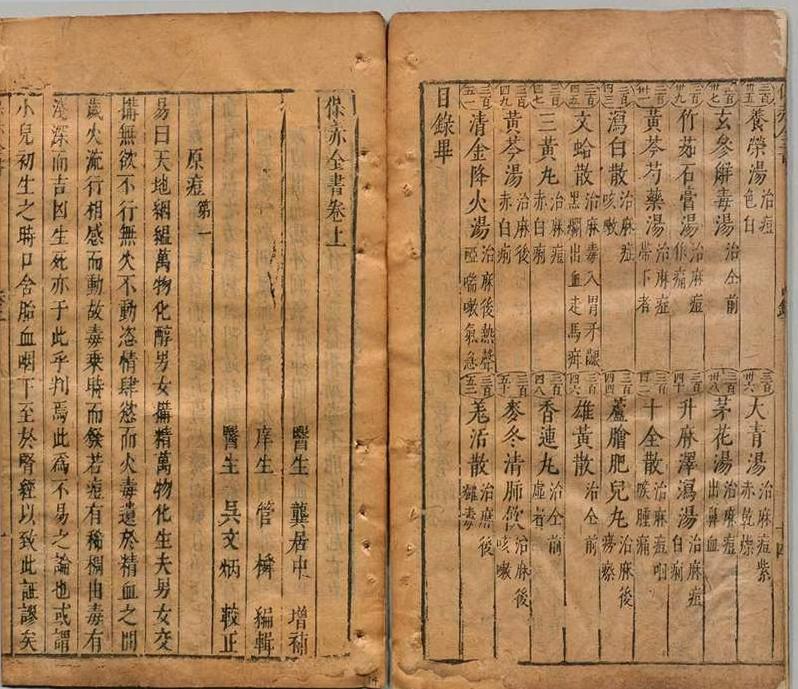 三百卅五 養榮湯 治痘色白 三百卅六 大青湯 治麻痘紫赤乾燥
三百卅七 玄參解毒湯 治仝前 三百卅八 茅花湯 治麻痘出鼻血
三百卅九 竹茹石膏湯 治麻痘作痛 三百四十 升麻澤瀉湯 治麻痘白痢
三百卌一 黃芩芍藥湯 治麻痘帶下者 三百四二 十全散 治麻痘咽喉腫痛
三百四三 瀉白散 治麻痘咳嗽 三百四四 蘆膾肥兒丸 治麻後痨瘵
三百四五 文蛤散 治麻毒入胃牙齦黑爛出血走馬疳 三百四六 雄黃散 治仝前
三百四七 三黃丸 治麻痘赤白痢 三百四八 香連丸 治仝前虛者
三百四九 黃芩湯 治麻後赤白痢 三百五十 麥冬清肺飲 治麻後咳嗽
三百五一 清金降火湯 治麻後熱聲啞喘嗽氣急 三百五二 羌活散 治麻後癰毒
目錄畢
保赤全書卷上
醫生 龔居中 增補
庠生 管橓 編輯
醫生 吳文炳 較正
原痘 第一
易曰天地絪緼萬物化醇男女搆精萬物化生夫男女交
搆無欲不行無火不動恣情肆慾而火毒遺於精血之間
歲火流行相感而動故毒乗時而發若痘有稀稠由毒有
淺深而吉凶生死亦于此乎判焉此為不易之論也或謂
小兒初生之時口含胎血咽下至於腎經以致此証謬矣